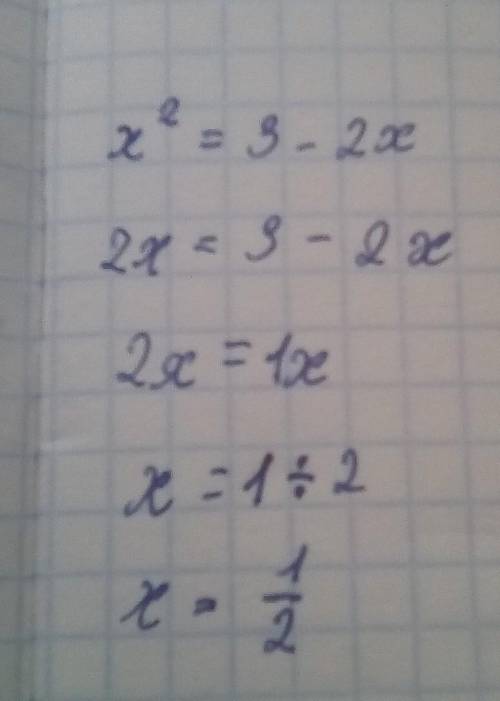 x² = 3 - 2x
2x = 3 - 2x
2x = 1x
x = 1 ÷ 2
x = 1/2